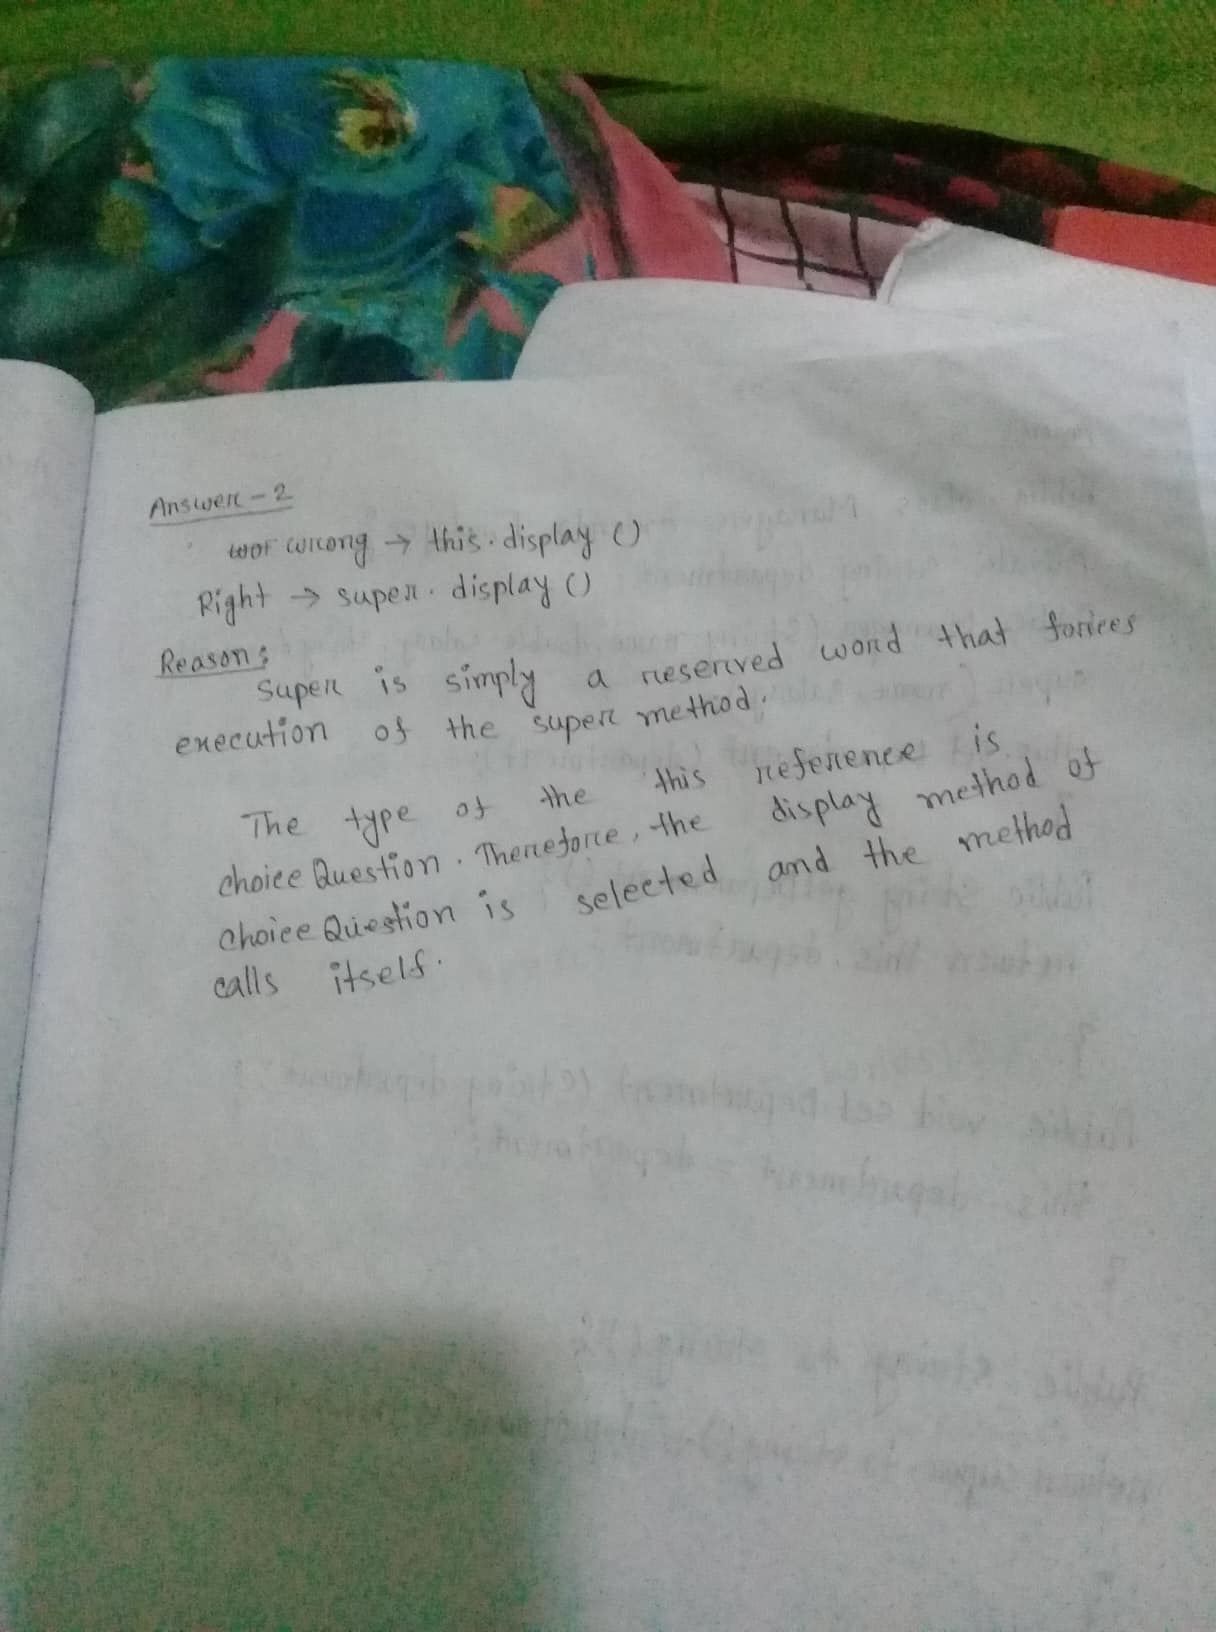 Answer - 2
wrong → this.display ()
Right → super.display ()
Reason:
Super is simply a reserved word that forces
execution of the super method.
The type of the this reference is
choice Question. Therefore, the display method of
choice Question is selected and the method
calls itself.